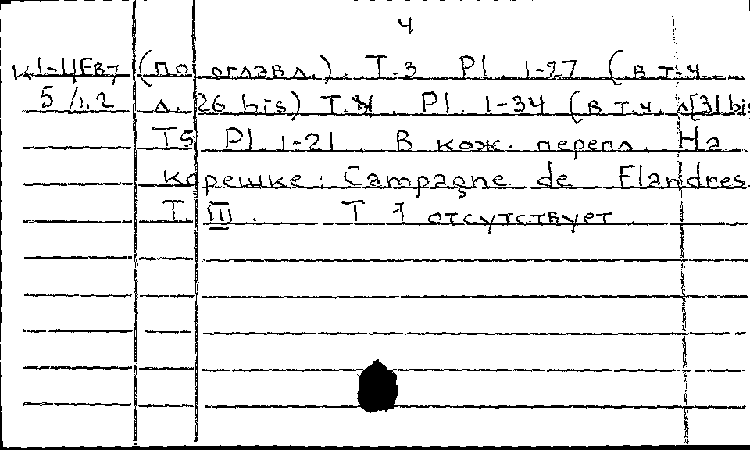 4
К1-ЦЕвт (по оглавл.). Т.3 Pl. 1-27 (в т.ч.
5/1.2 л. 26 bis) Т.4. Pl. 1-34 (в т.ч. л[31 bis
Т5 Pl. 1-21. В кож. перепл. На
корешке: Campagne de Flandres.
Т. III. Т 1 отсутствует